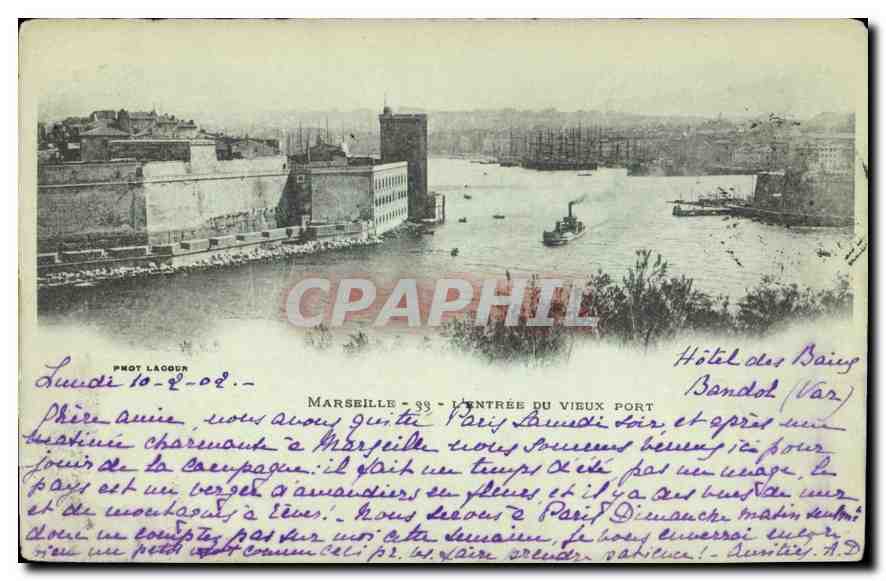 CPAPHIL
PHOT LACOUR
MARSEILLE - 33 - L'ENTRÉE DU VIEUX PORT
Hôtel des Bains
Bandol (Var)
Lundi 10-2-02.-
Chère amie, nous avons quitté Paris Samedi soir, et après une
matinée charmante à Marseille nous sommes venus ici pour
jouir de la campagne: il fait un temps d'été pas un nuage, le
pays est un verger d'amandiers en fleurs, et il y a des vues de mer
et de montagnes à rêver! - Nous serons à Paris Dimanche matin seulemt
donc ne comptez pas sur moi cette semaine, je vous enverrai
rien un petit mot comme celui ci pr. vs. faire prendre patience! - Amitiés. A.D